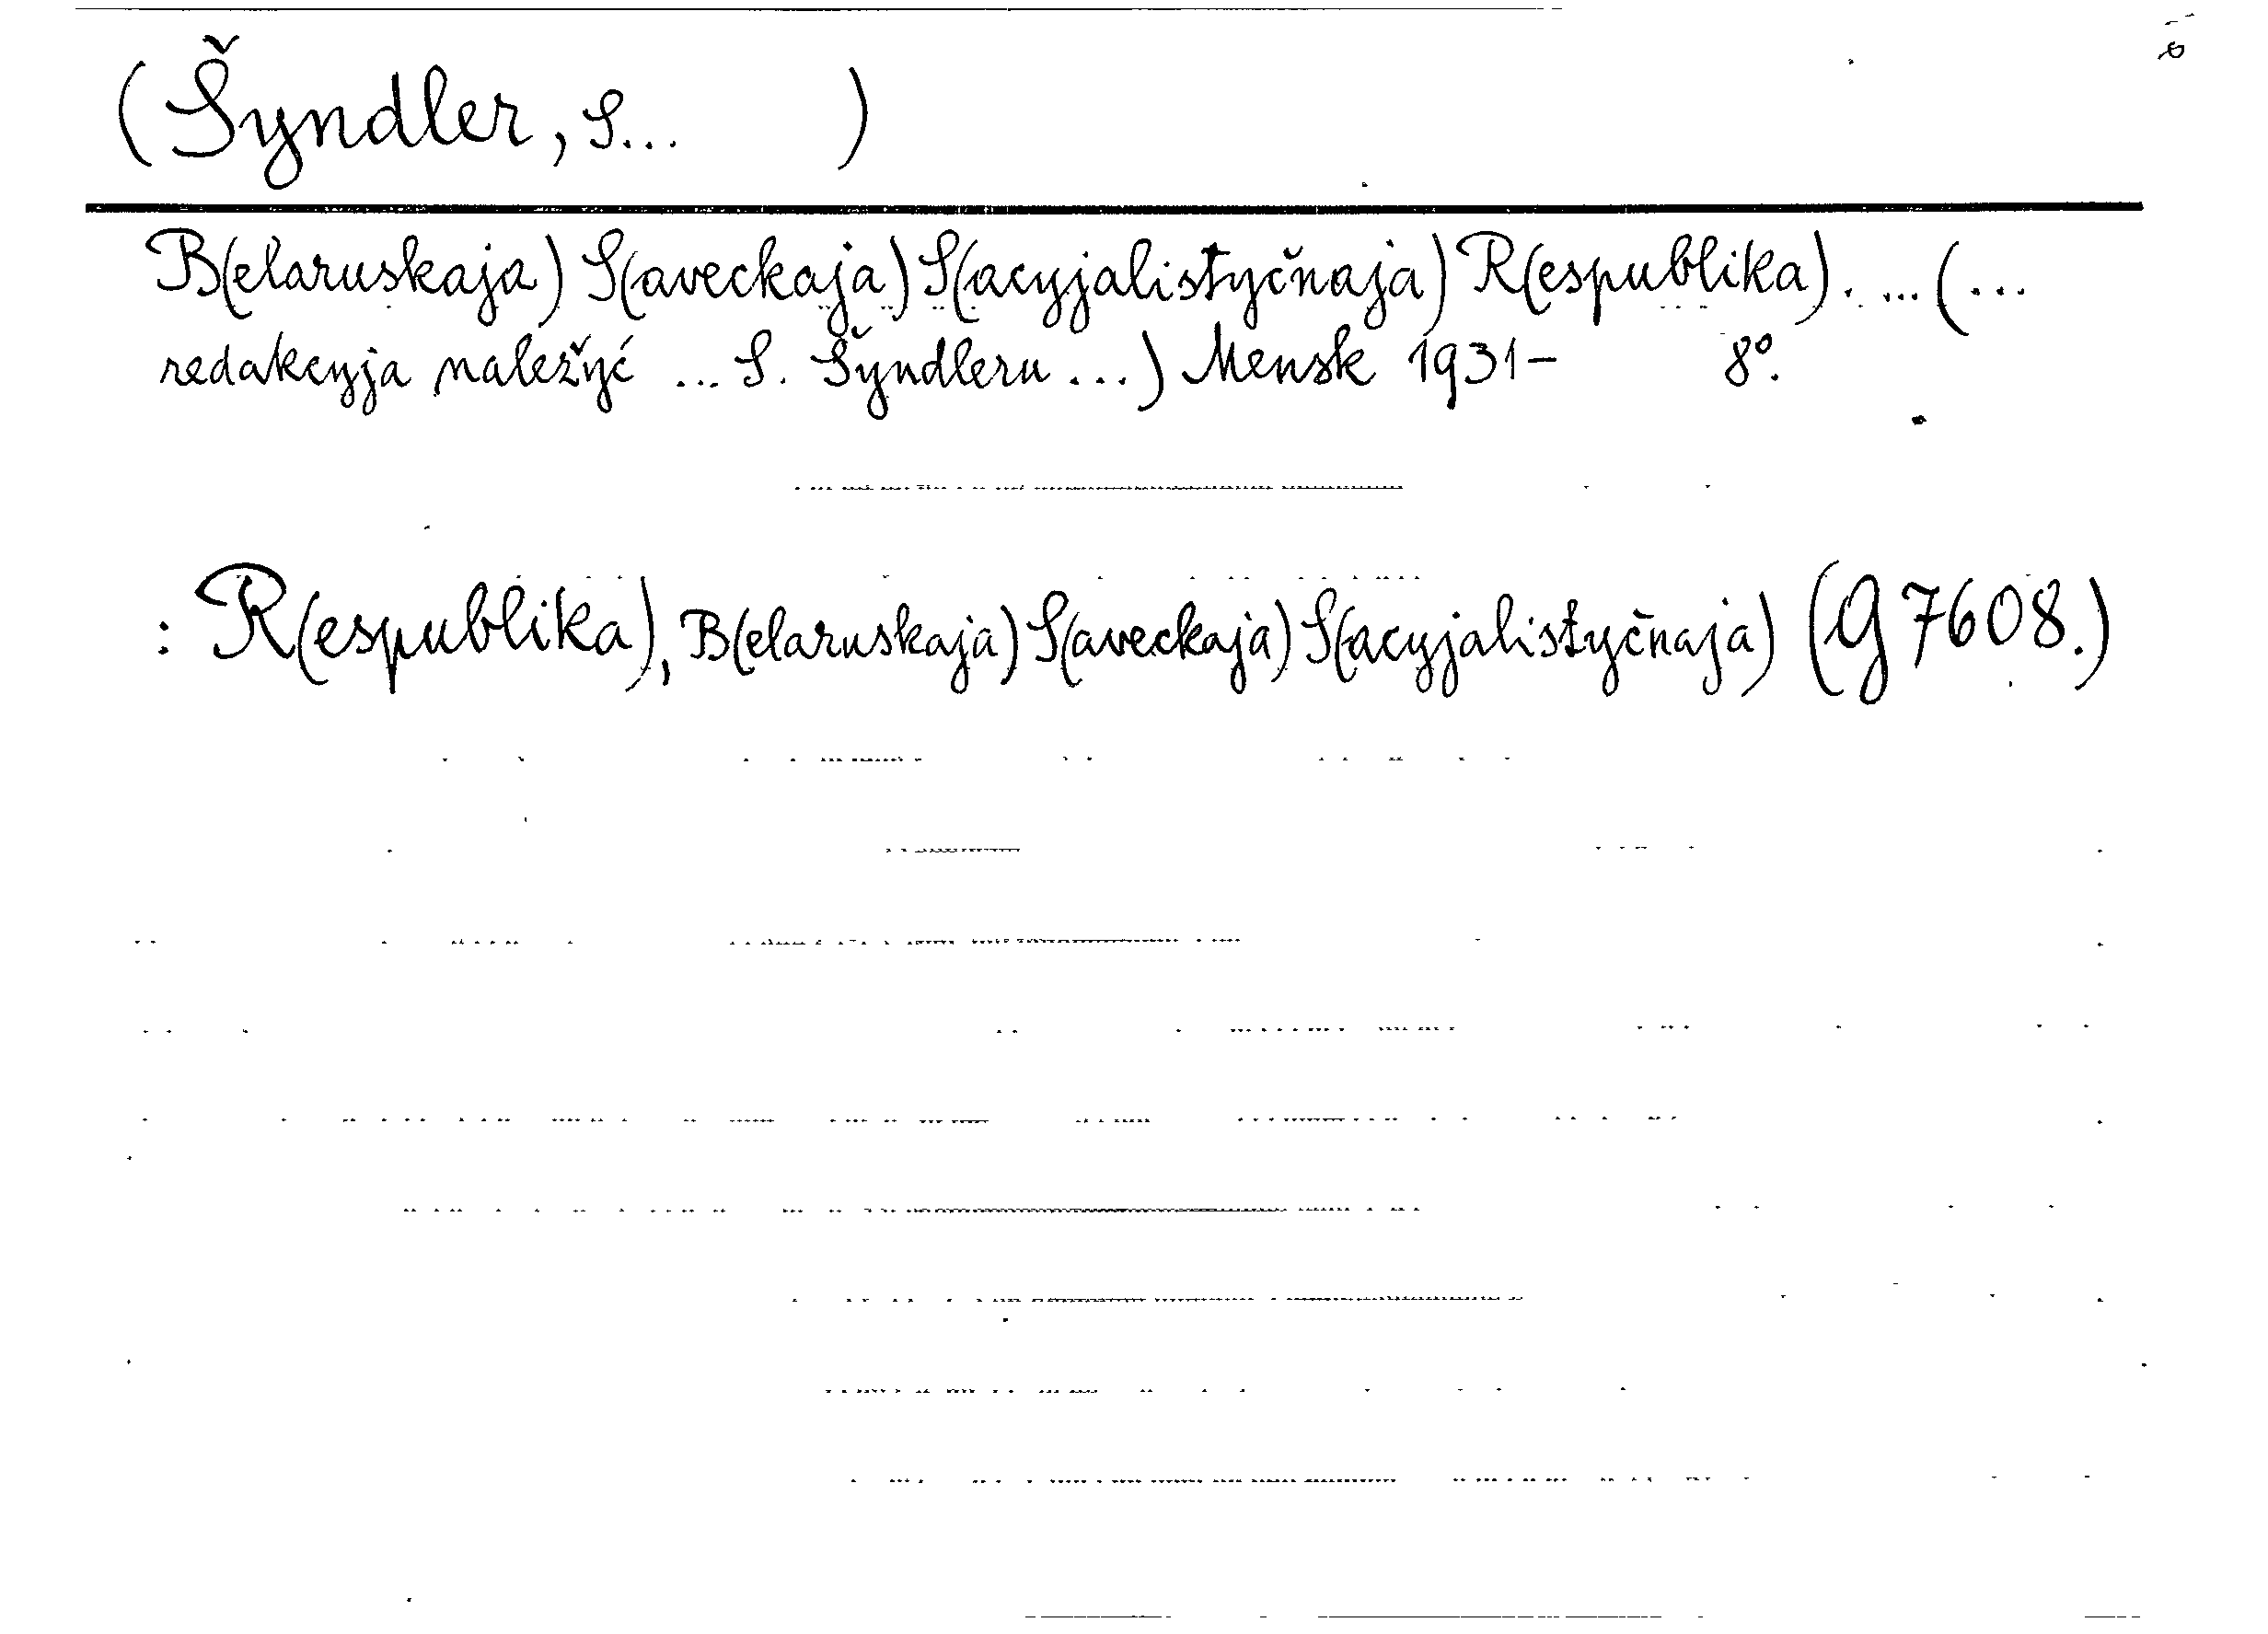 (Šyndler, S... )
B(elaruskaja) S(aveckaja) S(acyjalistyčnaja) R(espublika). ... (...
redakcyja naležyć ... S. Šyndleru ...) Mensk 1931- 8º.
: R(espublika), B(elaruskaja) S(aveckaja) S(acyjalistyčnaja) (G 7608.)